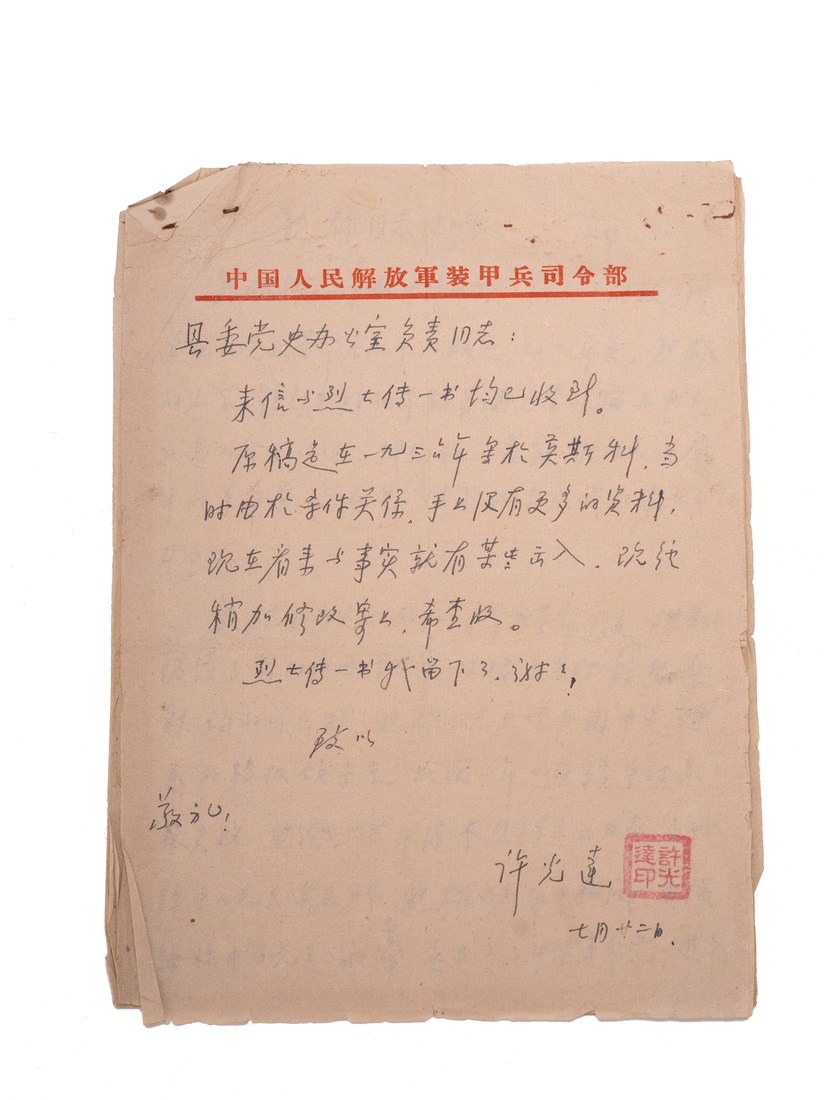 中国人民解放軍装甲兵司令部
县委党史办公室负责同志：
来信与烈士传一书均已收到。
原稿是在一九三六年写于莫斯科，当
时由于条件关係，手上没有更多的资料，
现在看来与事实就有某些出入，现经
稍加修改寄上，希查收。
烈士传一书我留下了，谢谢！
致以
敬礼！
许光達
許光達印
七月廿二日.